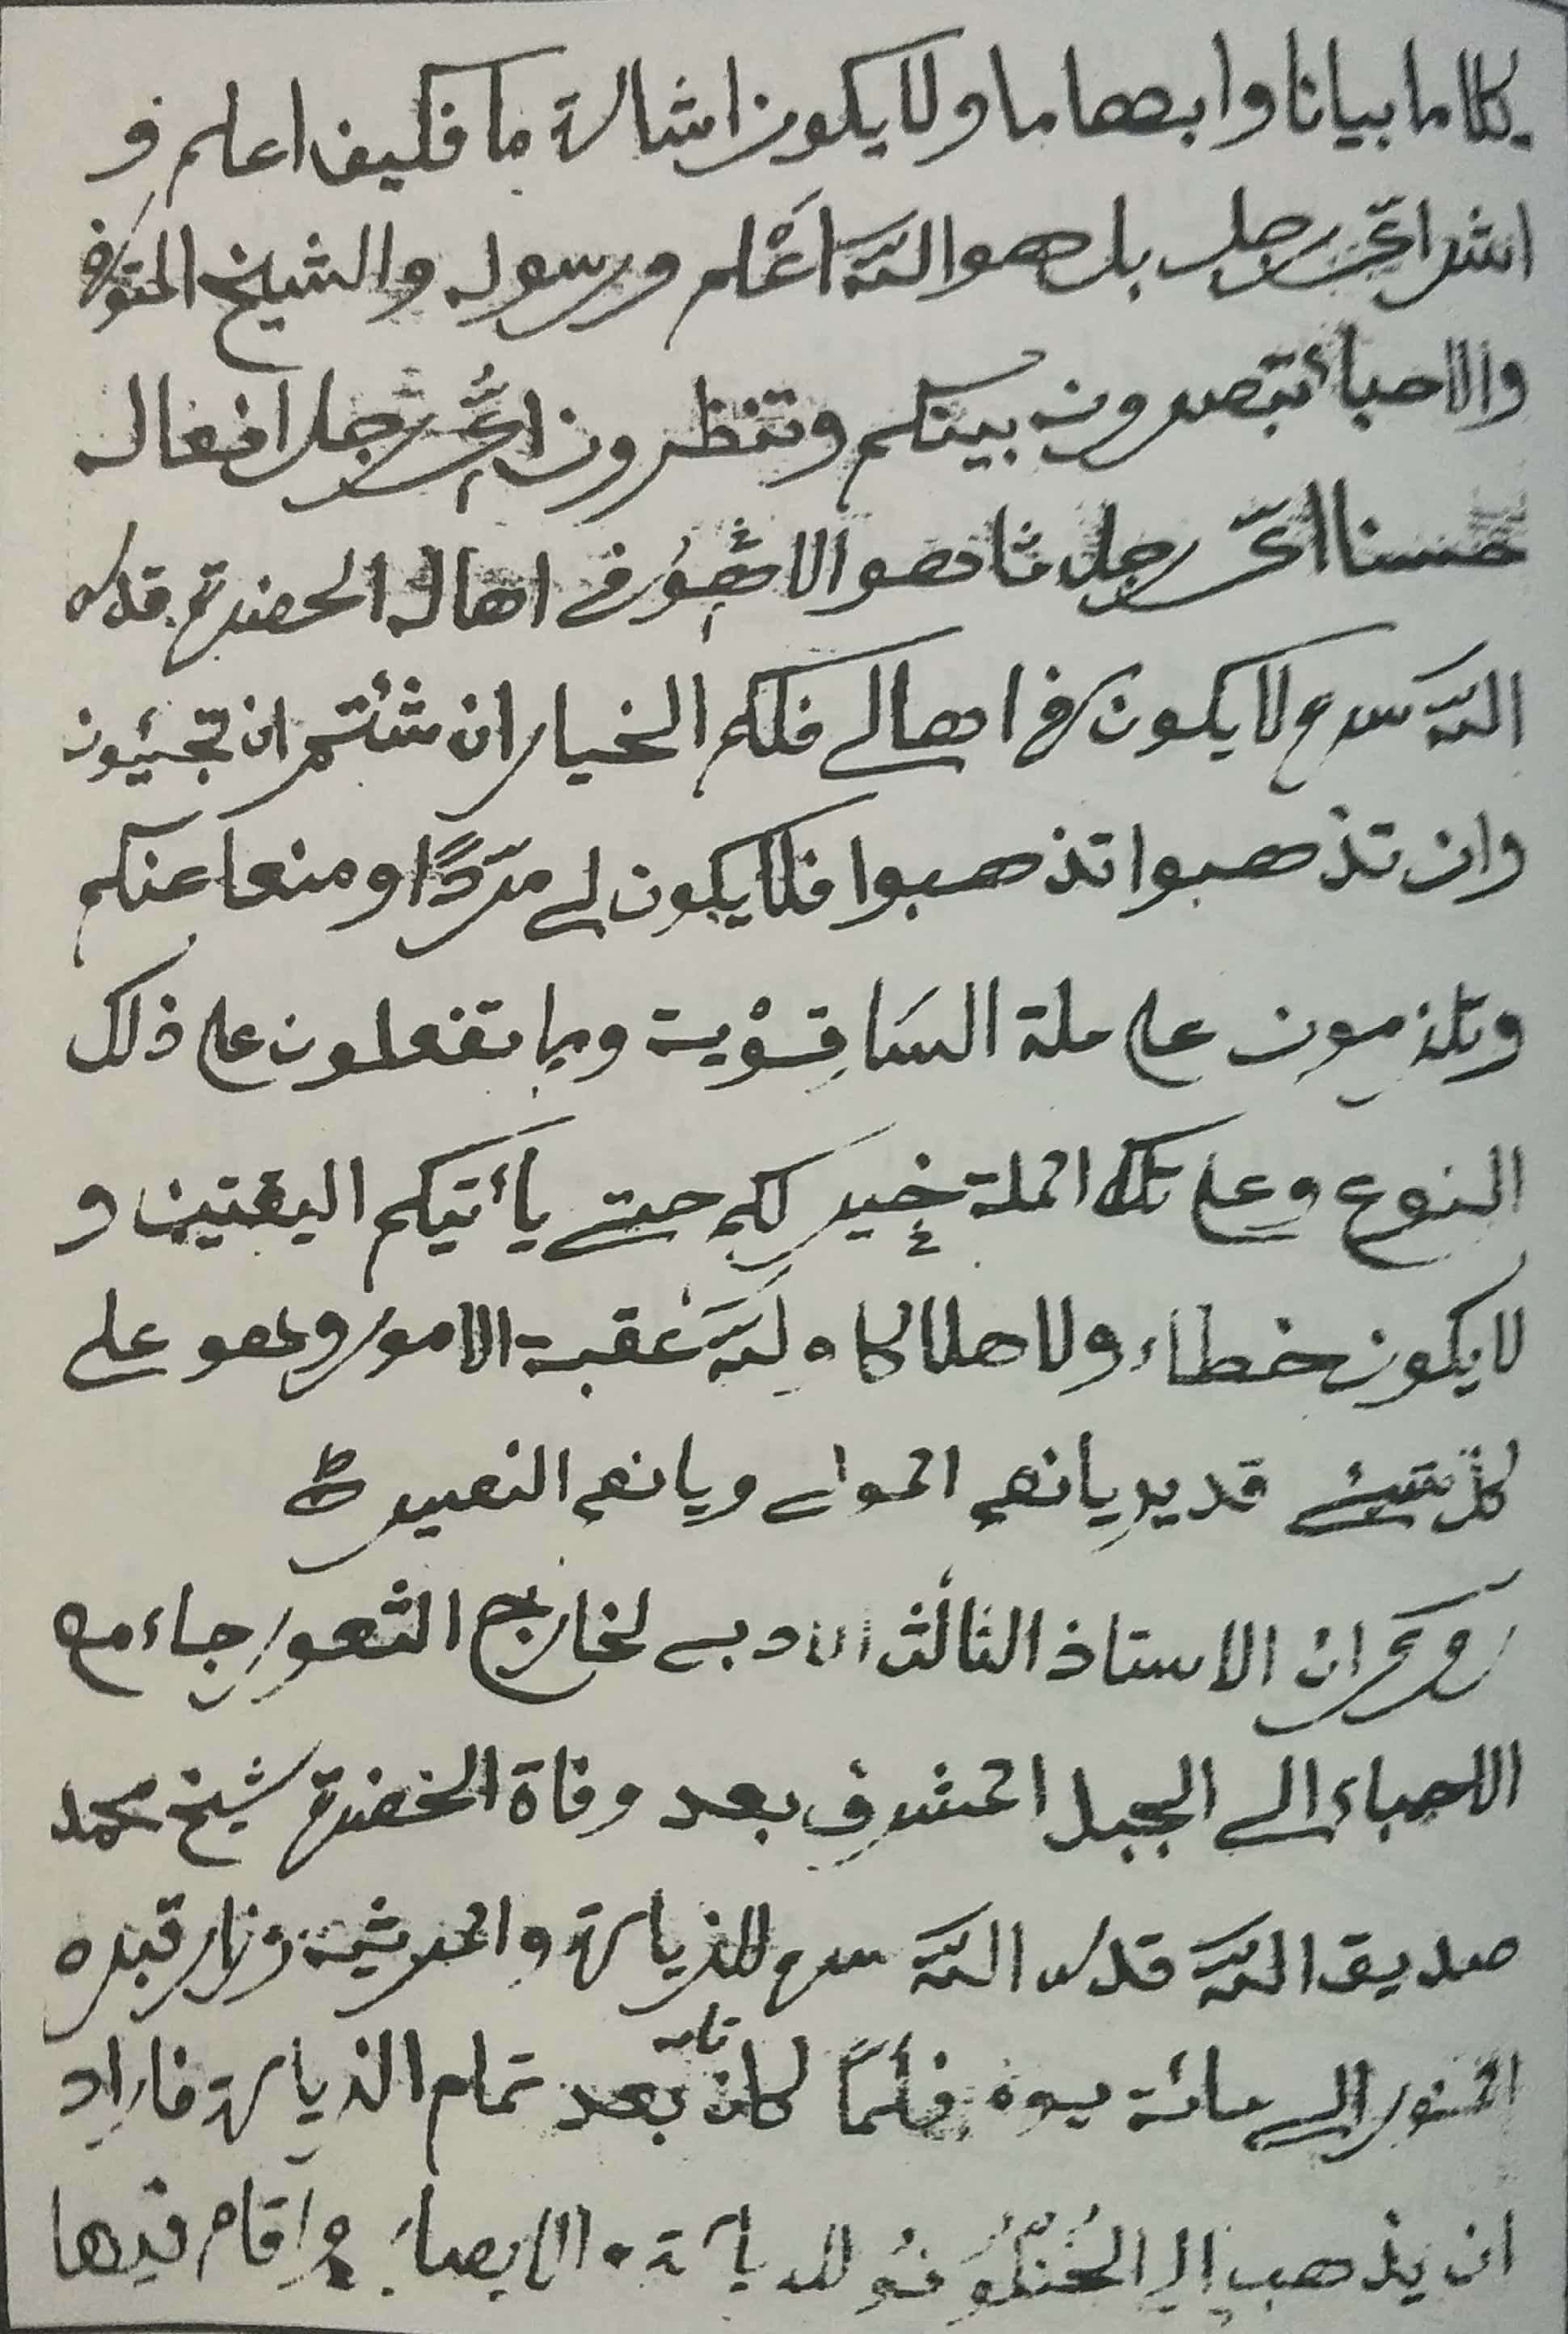 كلاما بيانا وابهاما ولا يكون اشارة ما فكيف اعلم و
اشر ائ رجل بل هو اللّه اَعْلم ورسوله والشيخ المتوفى
والاحبأ تبصرون بينكم وتنظرون ائُّ رجل افعاله
حسنا ائّ رجل ثا دهو الا شهور في اهاله الحضرة قدس
اللّه سره لا يكون في اهالى فلكم الخيار ان شئتم ان تجيئون
وان تذهبوا تذهبوا فلا يكون لى مردًّا ومنعا عنكم
وتلزمون على ملة السَاقِوْية وبما تفعلون على ذلك
النوع وعلى تلك الملة خير لكم حتى يأتيكم اليقين و
لا يكون خطاء ولا هلاكا ه ولِلّه عٰقبة الامور وهو على
كلّ شئ قدير يا نعم المولى ويا نعم النصير
روى ان الاستاذ الثالث الادبى لخارج الثعور جاء مع
الاحباء الى الجبل المشرف بعد وفاة الحضرة شيخ محمد
صديق اللّه قدس اللّه سره للزيارة والمرثية وزار قبره
المنور الى مائة يوم فلمّا كان تامة بعد تمام الزيارة فاراد
ان يذهب الى للزيارة الايصا واقام فيها